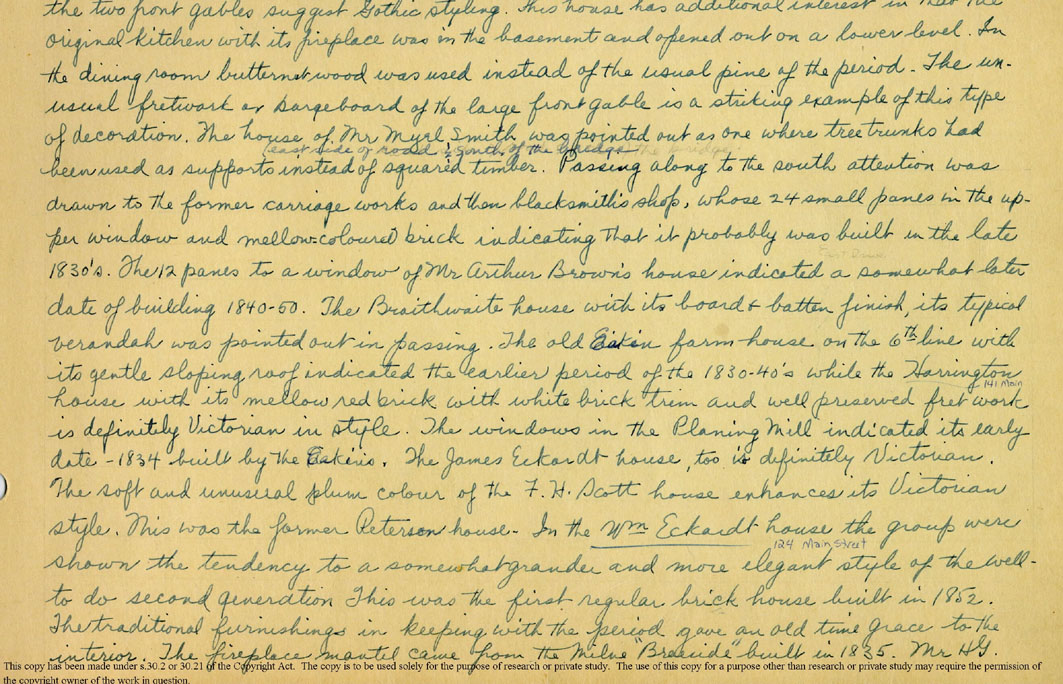 the two front gables suggest Gothic styling. This house has additional interest in that the
original kitchen with its fireplace was in the basement and opened out on a lower level. In
the dining room butternut wood was used instead of the usual pine of the period. The un-
usual fretwork or bargeboard of the large front gable is a striking example of this type
of decoration. The house of Mr Myrl Smith, was pointed out as one where tree trunks had
east side of road & South of the bridge
been used as supports instead of squared timber. Passing along to the south attention was
drawn to the former carriage works and then blacksmith's shop, whose 24 small panes in the up-
per window and mellow-coloured brick indicating that it probably was built in the late
1830's. The 12 panes to a window of Mr Arthur Brown's house indicated a somewhat later
date of building 1840-50. The Braithwaite house with its board & batten finish, its typical
verandah was pointed out in passing. The old Eakin farm-house on the 6th line with
its gentle sloping roof indicated the earlier period of the 1830-40's while the Harrington
141 Main
house with its mellow red brick with white brick trim and well preserved fret work
is definitely Victorian in style. The windows in the Planing Mill indicated its early
date - 1834 built by the Eakins. The James Eckardt house, too is definitely Victorian.
The soft and unusual plum colour of the F. H. Scott house enhances its Victorian
style. This was the former Peterson house. In the Wm Eckardt house the group were
124 Main Street
shown the tendency to a somewhat grander and more elegant style of the well-
to do second generation This was the first regular brick house built in 1852.
The traditional furnishings in keeping with the period gave an old time grace to the
interior. The fireplace mantel came from the Milne "Braeside" built in 1835. Mr H.G.
This copy has been made under s.30.2 or 30.21 of the Copyright Act. The copy is to be used solely for the purpose of research or private study. The use of this copy for a purpose other than research or private study may require the permission of
the copyright owner of the work in question.